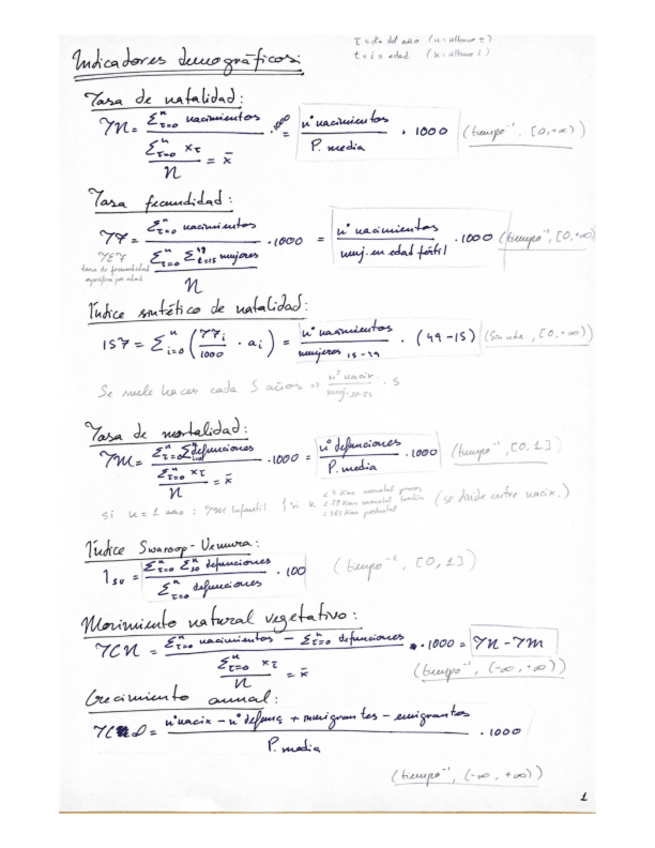 Indicadores demográficos:
τ = día del año (n = último τ)
t = i = edad (k = último i)
Tasa de natalidad:
TN = Σⁿτ=0 nacimientos / (Σⁿτ=0 xτ / n = x̄) · 1000 = nº nacimientos / P. media · 1000 (tiempo⁻¹. [0,+∞))
Tasa fecundidad:
TF = Σⁿτ=0 nacimientos / (Σⁿτ=0 Σ⁴⁹t=15 mujeres / n) · 1000 = nº nacimientos / muj. en edad fértil · 1000 (tiempo⁻¹, [0,+∞)
TEF
tasa de fecundidad
específica por edad
Índice sintético de natalidad:
ISF = Σⁿi=0 (TFi / 1000 · ai) = nº nacimientos / mujeres 15-49 · (49-15) (Sin uds., [0,+∞))
Se suele hacer cada 5 años => nº nacim. / muj. 20-25 · 5
Tasa de mortalidad:
TM = Σⁿτ=0 Σ defunciones / (Σⁿτ=0 xτ / n = x̄) · 1000 = nº defunciones / P. media · 1000 (tiempo⁻¹, [0,1])
si k = 1 año : TM Infantil. { si k
< 7 días neonatal precoz
< 28 días neonatal tardía
< 365 días postnatal
(se divide entre nacim.)
Índice Swaroop-Uemura:
Isu = Σⁿτ=0 Σⁿ50 defunciones / Σⁿτ=0 defunciones · 100 (tiempo⁻¹, [0,1])
Movimiento natural vegetativo:
TCN = Σⁿτ=0 nacimientos − Σⁿτ=0 defunciones / (Σⁿτ=0 xτ / n = x̄) · 1000 = TN - TM
(tiempo⁻¹, (-∞,+∞))
Crecimiento annual:
= nº nacim − nº defunc + inmigrantes − emigrantes / P. media · 1000
(tiempo⁻¹, (-∞, +∞))
1